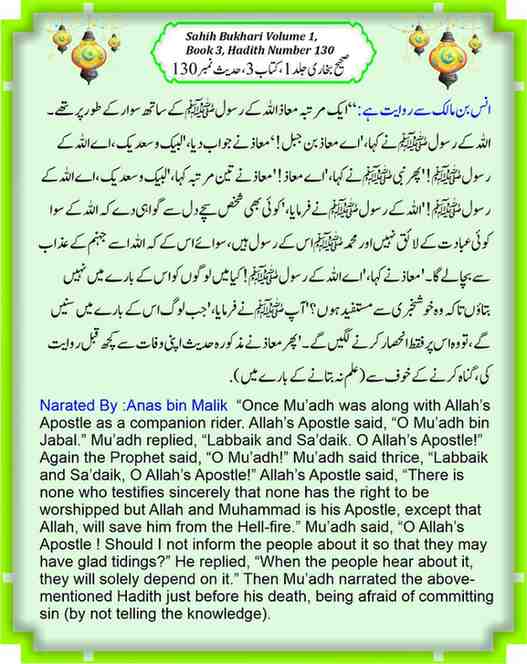 Sahih Bukhari Volume 1,
Book 3, Hadith Number 130
صحیح بخاری جلد 1، کتاب 3، حدیث نمبر 130
انس بن مالک سے روایت ہے: ‘‘ایک مرتبہ معاذ اللہ کے رسول ﷺ کے ساتھ سوار کے طور پر تھے۔
اللہ کے رسول ﷺ نے کہا، 'اے معاذ بن جبل!' معاذ نے جواب دیا، 'لبیک و سعدیک، اے اللہ کے
رسول ﷺ!' پھر نبی ﷺ نے کہا، 'اے معاذ!' معاذ نے تین مرتبہ کہا، 'لبیک و سعدیک، اے اللہ کے
رسول ﷺ!' اللہ کے رسول ﷺ نے فرمایا، 'کوئی بھی شخص سچے دل سے گواہی دے کہ اللہ کے سوا
کوئی عبادت کے لائق نہیں اور محمد ﷺ اس کے رسول ہیں، سوائے اس کے کہ اللہ اسے جہنم کے عذاب
سے بچا لے گا۔' معاذ نے کہا، 'اے اللہ کے رسول ﷺ! کیا میں لوگوں کو اس کے بارے میں نہیں
بتاؤں تاکہ وہ خوشخبری سے مستفید ہوں؟' آپ ﷺ نے فرمایا، 'جب لوگ اس کے بارے میں سنیں
گے، تو وہ اس پر فقط انحصار کرنے لگیں گے۔' پھر معاذ نے مذکورہ حدیث اپنی وفات سے کچھ قبل روایت
کی، گناہ کرنے کے خوف سے (علم نہ بتانے کے بارے میں).
Narrated By :Anas bin Malik “Once Mu’adh was along with Allah’s
Apostle as a companion rider. Allah’s Apostle said, “O Mu’adh bin
Jabal.” Mu’adh replied, “Labbaik and Sa’daik. O Allah’s Apostle!”
Again the Prophet said, “O Mu’adh!” Mu’adh said thrice, “Labbaik
and Sa’daik, O Allah’s Apostle!” Allah’s Apostle said, “There is
none who testifies sincerely that none has the right to be
worshipped but Allah and Muhammad is his Apostle, except that
Allah, will save him from the Hell-fire.” Mu’adh said, “O Allah’s
Apostle ! Should I not inform the people about it so that they may
have glad tidings?” He replied, “When the people hear about it,
they will solely depend on it.” Then Mu’adh narrated the above-
mentioned Hadith just before his death, being afraid of committing
sin (by not telling the knowledge).